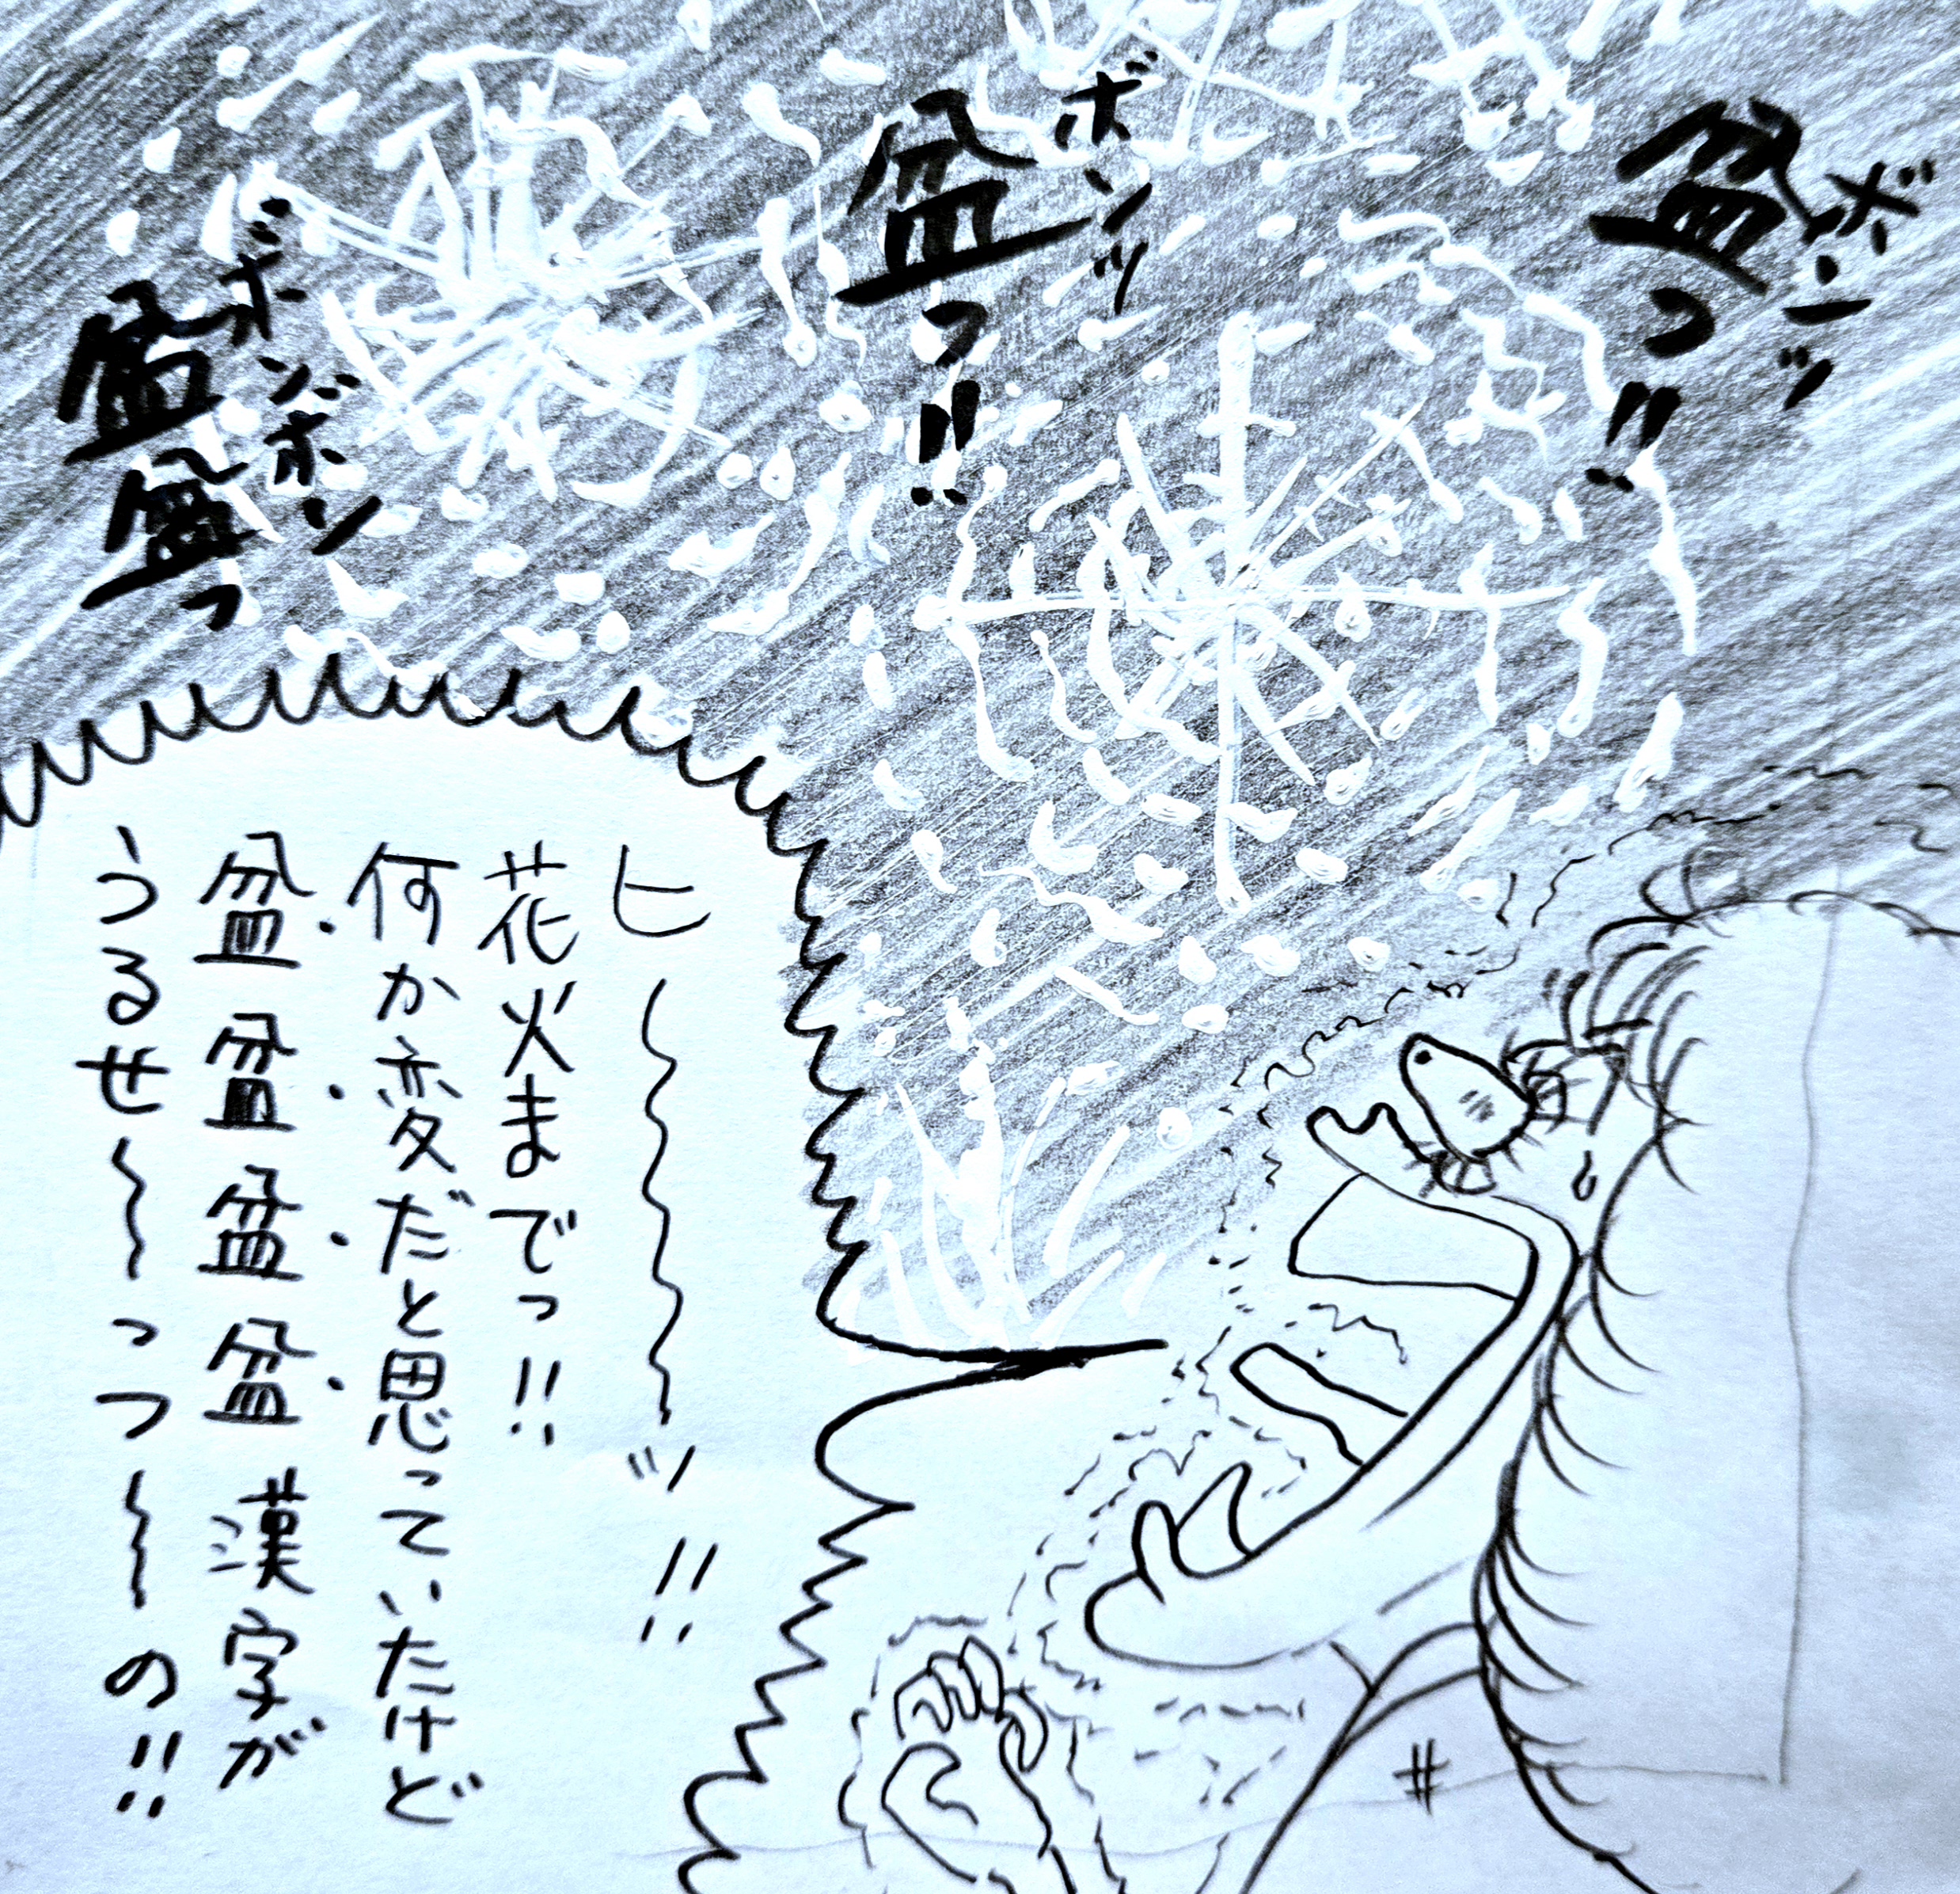 盆っ!!
ボンッ
盆っ!!
ボンッ
盆盆っ
ボンボン
ヒ〜〜〜〜ッ!!
花火までっ!!
何か変だと思っていたけど
盆盆盆盆漢字が
うるせ〜〜っつ〜〜の!!